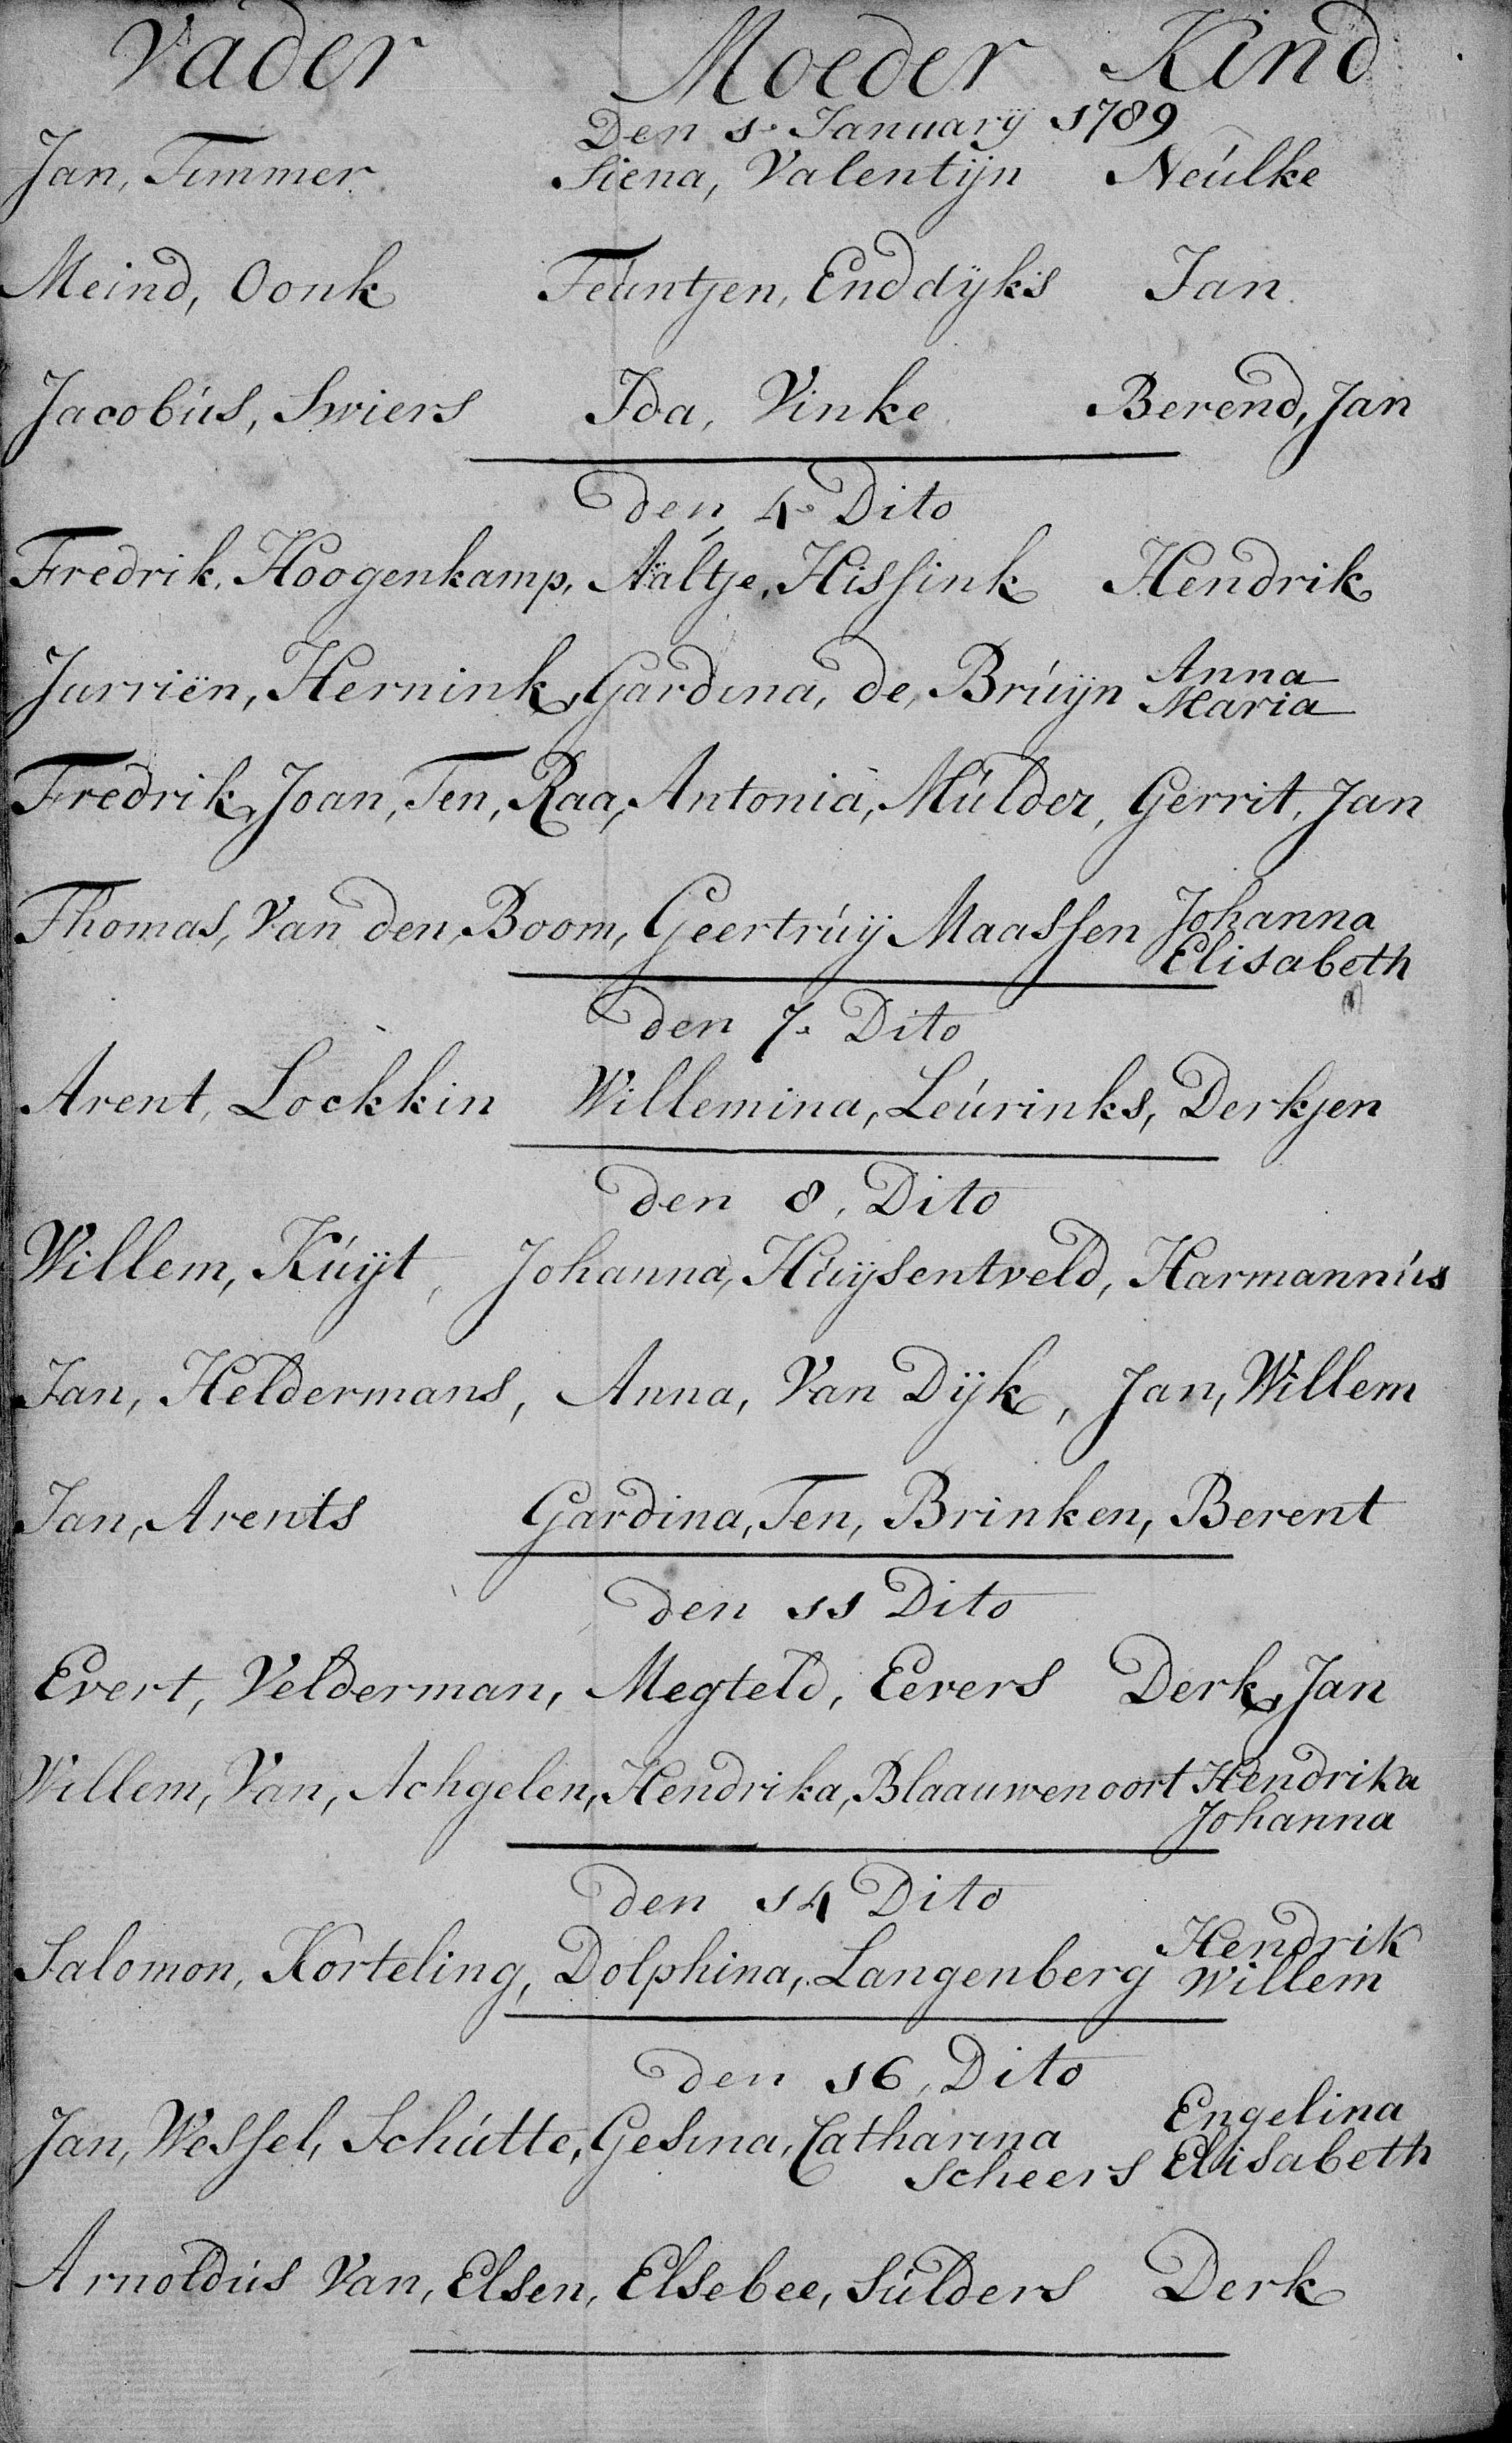 Vader Moeder Kind
Den 1. January 1789
Jan, Timmer Siena, Valentijn Neúlke
Meind, Oonk Teúntjen, Enddÿks Jan
Jacobús, Swiers Ida, Vinke Berend, Jan
den 4. Dito
Fredrik, Hoogenkamp, Aaltje, Hissink Hendrik
Jurriën, Hernink, Gardina, de, Brúÿn Anna
Maria
Fredrik, Joan, Ten, Raa, Antonia, Múlder, Gerrit, Jan
Thomas, Van den, Boom, Geertrúÿ Maassen Johanna
Elisabeth
den 7. Dito
Arent, Lockkin Willemina, Leúrinks, Derkjen
den 8. Dito
Willem, Kúÿt, Johanna, Húÿsentveld, Harmannús
Jan, Heldermans, Anna, Van Dÿk, Jan, Willem
Jan, Arents Gardina, Ten, Brinken, Berent
den 11 Dito
Evert, Velderman, Megteld, Eevers Derk, Jan
Willem, Van, Achgelen, Hendrika, Blaauwenoort Hendrika
Johanna
den 14 Dito
Salomon, Korteling, Dolphina, Langenberg Hendrik
Willem
den 16, Dito
Jan, Wessel, Schútte, Gesina, Catharina Engelina
Scheers Elisabeth
Arnoldús Van, Elsen, Elsebee, Súlders Derk